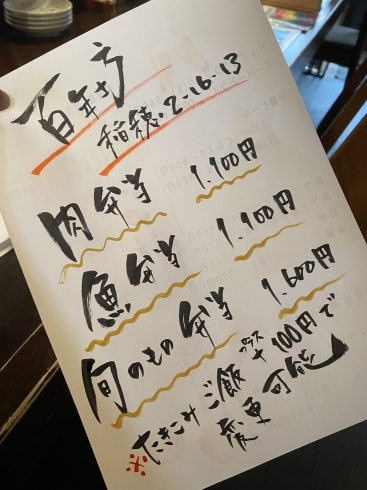 百年き方
稲穂・2-16-13
肉弁当 1.100円
魚弁当 1.100円
旬のもの弁当 1.600円
※たきこみご飯 プラス+100円で
変更可能